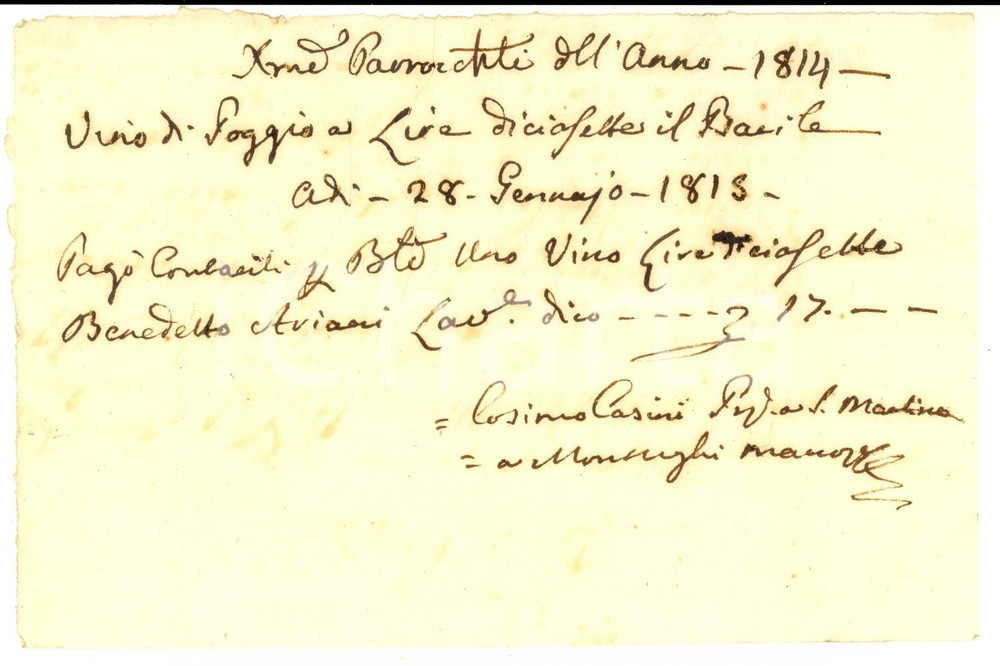 Xme Parrocchli dell'Anno - 1814 -
Vino di Poggio a Lire diciasette il Barile
Adi - 28 - Gennajo - 1815 -
Pagò p Ble Uno Vino Lire diciasette
Benedetto Ariani Lav.e dico - - - - £ 17. - -
= Cosimo Casini a S. Martino
= a Montughi